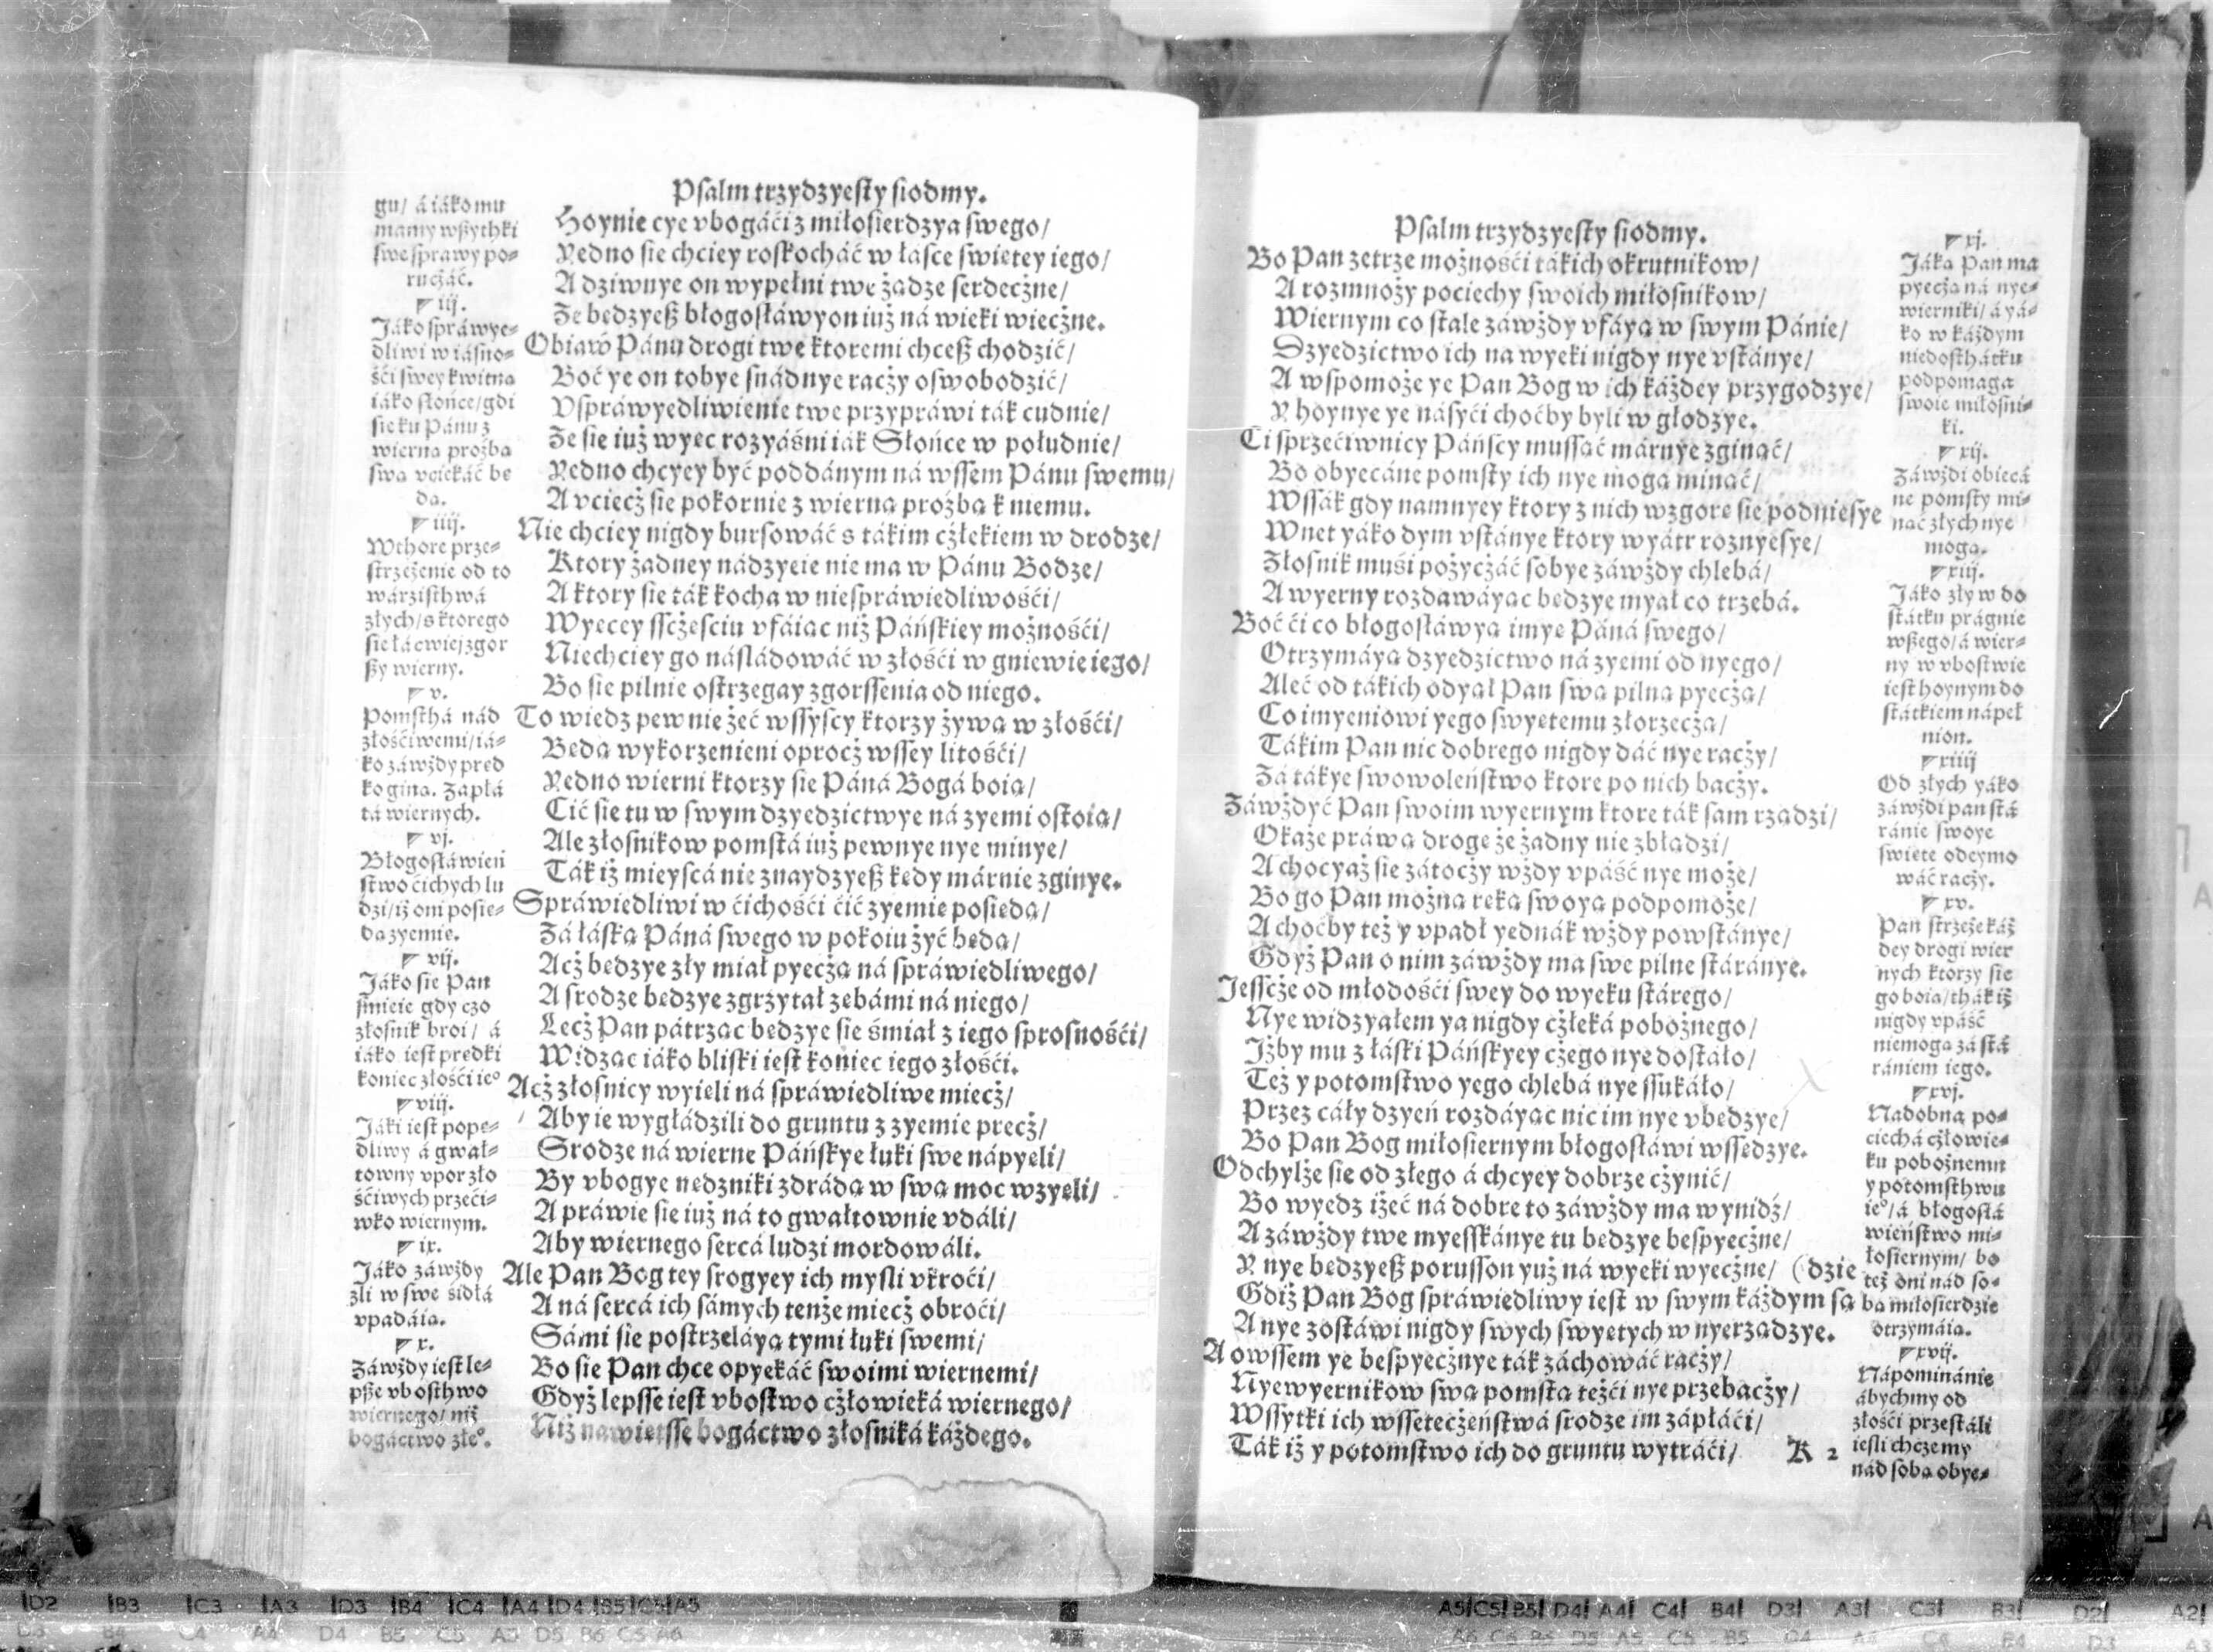 Psalm trzydzyesty siodmy.
gu/ á iáko mu
mamy wßythki
swe sprawy po⸗
ruczáć.
iij.
Jáko spráwye⸗
dliwi w iásno⸗
śći swey kwitną
iáko słońce/gdi
sie ku Pánu z
wierną proźbą
swą vciekáć bę
dą.
iiij.
Wthore prze⸗
strzeżenie od to
wárzisthwá
złych/s ktorego
sie łácwiej zgor
ßy wierny.
v.
Pomsthá nád
złośćiwemi/iá⸗
ko záwżdy pręd
ko giną. Zapłá
tá wiernych.
vj.
Błogosłáwień
stwo ćichych lu
dzi/iż oni posię⸗
dą zyemię.
vij.
Jáko sie Pan
śmieie gdy czo
złosnik broi/ á
iáko iest prędki
koniec złośći ieº
viij.
Jáki iest popę⸗
dliwy á gwał⸗
towny vpor zło
śćiwych przeći⸗
wko wiernym.
ix.
Jáko záwżdy
zli w swe śidłá
vpadáią.
x.
Záwżdy iest le⸗
pße vbosthwo
wiernego/ niż
bogáctwo złeº.
Hoynie cye vbogáći z miłosierdzya swego/
Yedno sie chciey roskocháć w łásce świętey iego/
A dziwnye on wypełni twe żądze serdeczne/
Że będzyeß błogosłáwyon iuż ná wieki wieczne.
Obiaw Pánu drogi twe ktoremi chceß chodzić/
Boć ye on tobye snádnye raczy oswobodzić/
Vspráwyedliwienie twe przypráwi ták cudnie/
Że sie iuż wyec rozyáśni iák Słońce w południe/
Yedno chcyey być poddánym ná wssem Pánu swemu/
A vciecż sie pokornie z wierną proźbą k niemu.
Nie chciey nigdy bursowáć s tákim człekiem w drodze/
Ktory żadney nádzyeie nie ma w Pánu Bodze/
A ktory sie ták kocha w niespráwiedliwośći/
Wyęcey ssczęściu vfáiąc niż Páńskiey możnośći/
Niechciey go násládowáć w złośći w gniewie iego/
Bo sie pilnie ostrzegay zgorssenia od niego.
To wiedz pewnie żeć wssyscy ktorzy żywą w złośći/
Będą wykorzenieni oprocż wssey litośći/
Yedno wierni ktorzy sie Páná Bogá boią/
Cić sie tu w swym dzyedzictwye ná zyemi ostoią/
Ale złosnikow pomstá iuż pewnye nye minye/
Ták iż mieyscá nie znaydzyeß kędy márnie zginye.
Spráwiedliwi w ćichośći ćić zyemię posiędą/
Zá łáską Páná swego w pokoiu żyć będą/
Acż będzye zły miał pyeczą ná spráwiedliwego/
A srodze będzye zgrzytał zębámi ná niego/
Lecż Pan pátrząc będzye sie śmiał z iego sprosnośći/
Widząc iáko bliski iest koniec iego złośći.
Acż złosnicy wyięli ná spráwiedliwe miecż/
Aby ie wygłádzili do gruntu z zyemie precż/
Srodze ná wierne Páńskye łuki swe nápyęli/
By vbogye nędzniki zdrádą w swą moc wzyęli/
A práwie sie iuż ná to gwałtownie vdáli/
Aby wiernego sercá ludzi mordowáli.
Ale Pan Bog tey srogyey ich mysli vkroći/
A ná sercá ich sámych tenże miecż obroći/
Sámi sie postrzeláyą tymi łuki swemi/
Bo sie Pan chce opyekáć swoimi wiernemi/
Gdyż lepsse iest vbostwo człowieká wiernego/
Niż nawiętsse bogáctwo złosniká káżdego.
Psalm trzydzyesty siodmy.
Bo Pan zetrze możnośći tákich okrutnikow/
A rozmnoży pociechy swoich miłosnikow/
Wiernym co stale záwżdy vfáyą w swym Pánie/
Dzyedzictwo ich na wyeki nigdy nye vstánye/
A wspomoże ye Pan Bog w ich káżdey przygodzye/
Y hoynye ye násyći choćby byli w głodzye.
Ci sprzećiwnicy Páńscy mussąć márnye zginąć/
Bo obyecáne pomsty ich nye mogą minąć/
Wssák gdy namnyey ktory z nich wzgorę sie podniesye
Wnet yáko dym vstánye ktory wyátr roznyesye/
Złosnik muśi pożycżáć sobye záwżdy chlebá/
A wyerny rozdawáyąc będzye myał co trzebá.
Boć ći co błogosłáwyą imye Páná swego/
Otrzymáyą dzyedzictwo ná zyemi od nyego/
Aleć od tákich odyął Pan swą pilną pyeczą/
Co imyeniowi yego swyętemu złorzeczą/
Tákim Pan nic dobrego nigdy dáć nye raczy/
Zá tákye swowoleństwo ktore po nich baczy.
Záwżdyć Pan swoim wyernym ktore ták sam rządzi/
Okaże práwą drogę że żadny nie zbłądzi/
A chocyaż sie zátoczy wżdy vpáść nye może/
Bo go Pan możną ręką swoyą podpomoże/
A choćby też y vpadł yednák wżdy powstánye/
Gdyż Pan o nim záwżdy ma swe pilne stáránye.
Jesscże od młodośći swey do wyeku stárego/
Nye widzyałem ya nigdy człeká pobożnego/
Jżby mu z łáski Páńskyey cżego nye dostało/
Też y potomstwo yego chlebá nye ssukáło/
Przez cáły dzyeń rozdáyąc nic im nye vbędzye/
Bo Pan Bog miłosiernym błogosłáwi wssędzye.
Odchylże sie od złego á chcyey dobrze czynić/
Bo wyedz iżeć ná dobre to záwżdy ma wynidź/
A záwżdy twe myesskánye tu będzye bespyeczne/
Y nye będzyeß porusson yuż ná wyeki wyeczne/ (dzie
Gdiż Pan Bog spráwiedliwy iest w swym káżdym są
A nye zostáwi nigdy swych swyętych w nyerządzye.
A owssem ye bespyecżnye ták záchowáć raczy/
Nyewyernikow swą pomstą teżći nye przebaczy/
Wssytki ich wssetecżeństwá srodze im zápłáći/
Ták iż y potomstwo ich do gruntu wytráći/
K 2
xj.
Jáką Pan ma
pyeczą ná nye⸗
wierniki/ á yá⸗
ko w káżdym
niedosthátku
podpomaga
swoie miłosni⸗
ki.
xij.
Záwżdi obiecá
ne pomsty mi⸗
nąć złych nye
mogą.
xiij.
Jáko zły w do
státku prágnie
wßego/á wier⸗
ny w vbostwie
iest hoynym do
státkiem nápeł
nion.
xiiij
Od złych yáko
záwżdi pan stá
ránie swoye
święte odeymo
wáć raczy.
xv.
Pan strzeże káż
dey drogi wier
nych ktorzy sie
go boią/thák iż
nigdy vpáść
niemogą zá stá
rániem iego.
xvj.
Nadobna po⸗
ciechá człowie⸗
ku pobożnemu
y potomsthwu
ieº/á błogosłá
wieństwo mi⸗
łosiernym/ bo
też oni nád so⸗
bą miłosierdzie
otrzymáią.
xvij.
Nápominánie
ábychmy od
złośći przestáli
iesli chczemy
nád sobą obye⸗